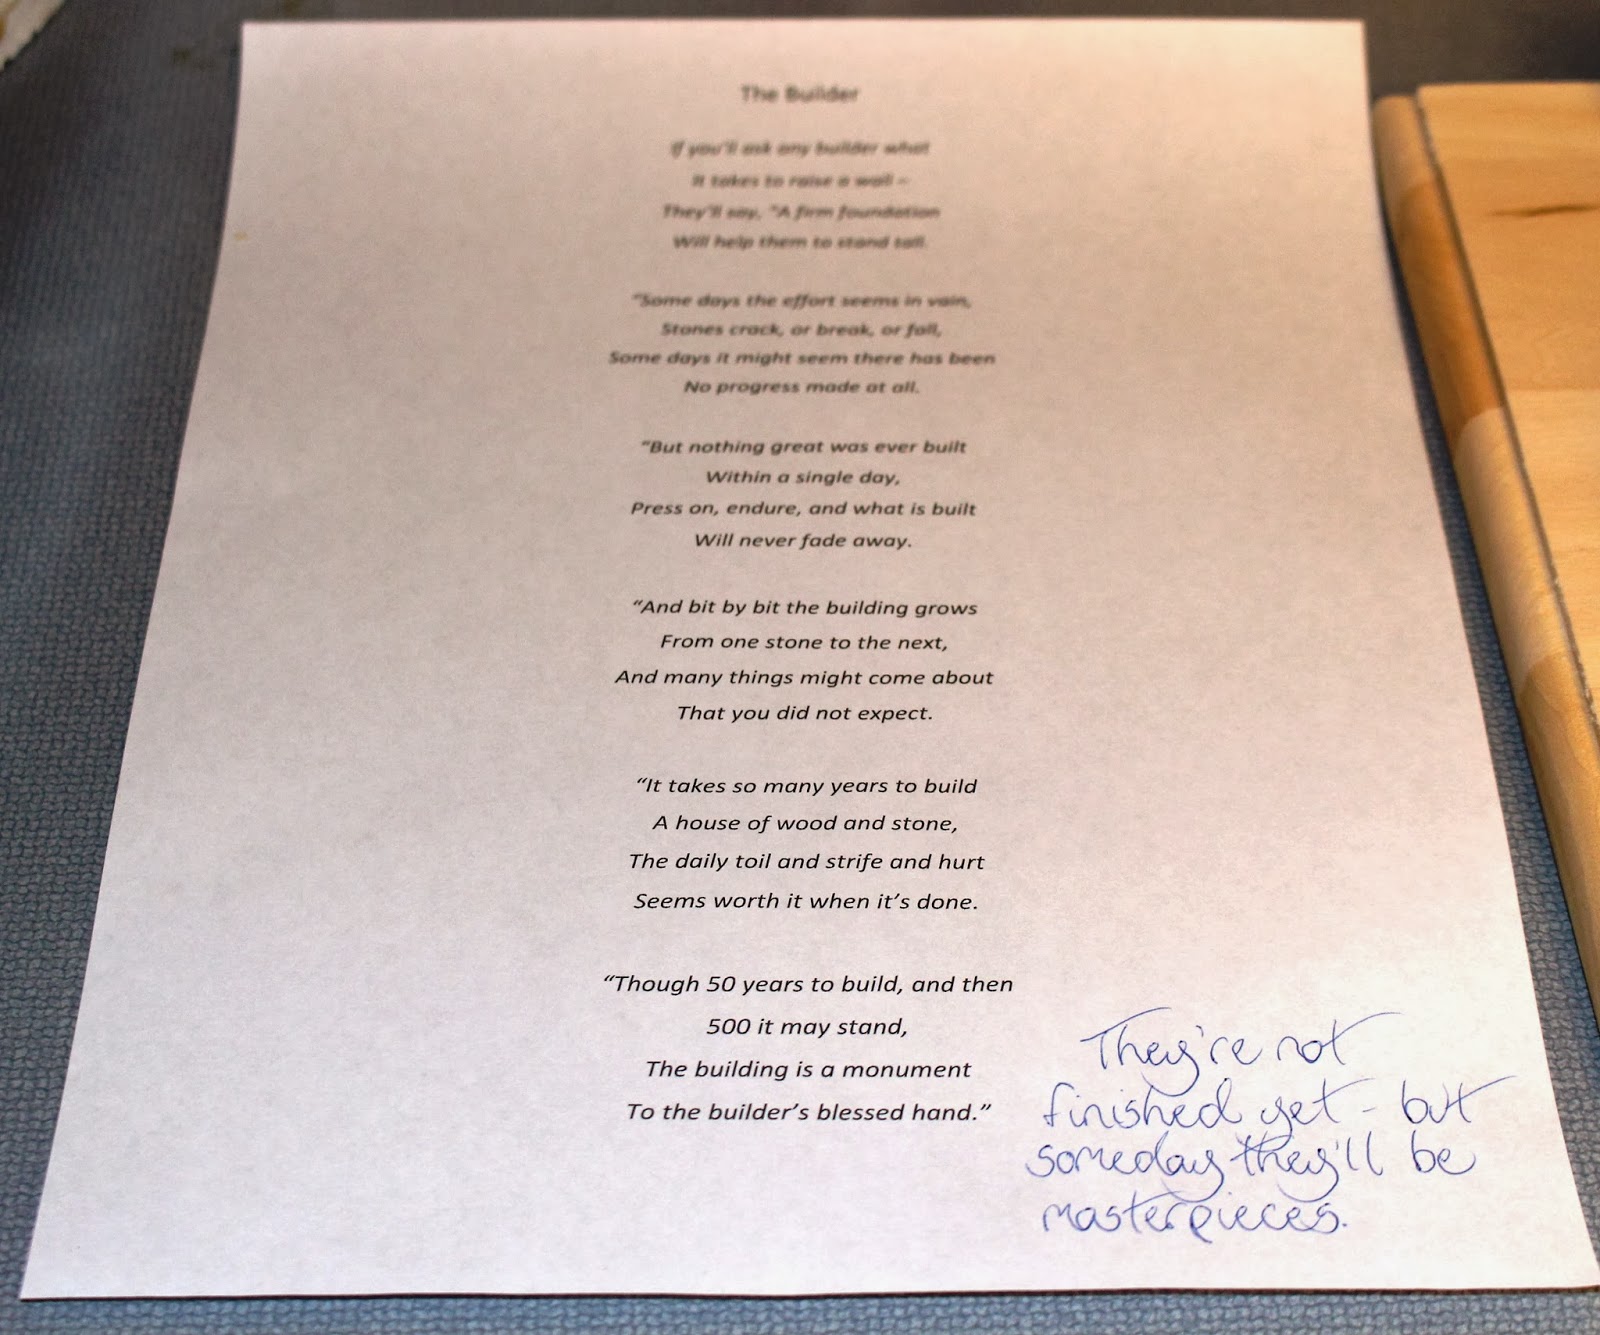 The Builder
If you'll ask any builder what
It takes to raise a wall –
They'll say, "A firm foundation
Will help them to stand tall.
“Some days the effort seems in vain,
Stones crack, or break, or fall,
Some days it might seem there has been
No progress made at all.
“But nothing great was ever built
Within a single day,
Press on, endure, and what is built
Will never fade away.
“And bit by bit the building grows
From one stone to the next,
And many things might come about
That you did not expect.
“It takes so many years to build
A house of wood and stone,
The daily toil and strife and hurt
Seems worth it when it’s done.
“Though 50 years to build, and then
500 it may stand,
The building is a monument
To the builder’s blessed hand.”
They're not
finished yet - but
someday they'll be
masterpieces.